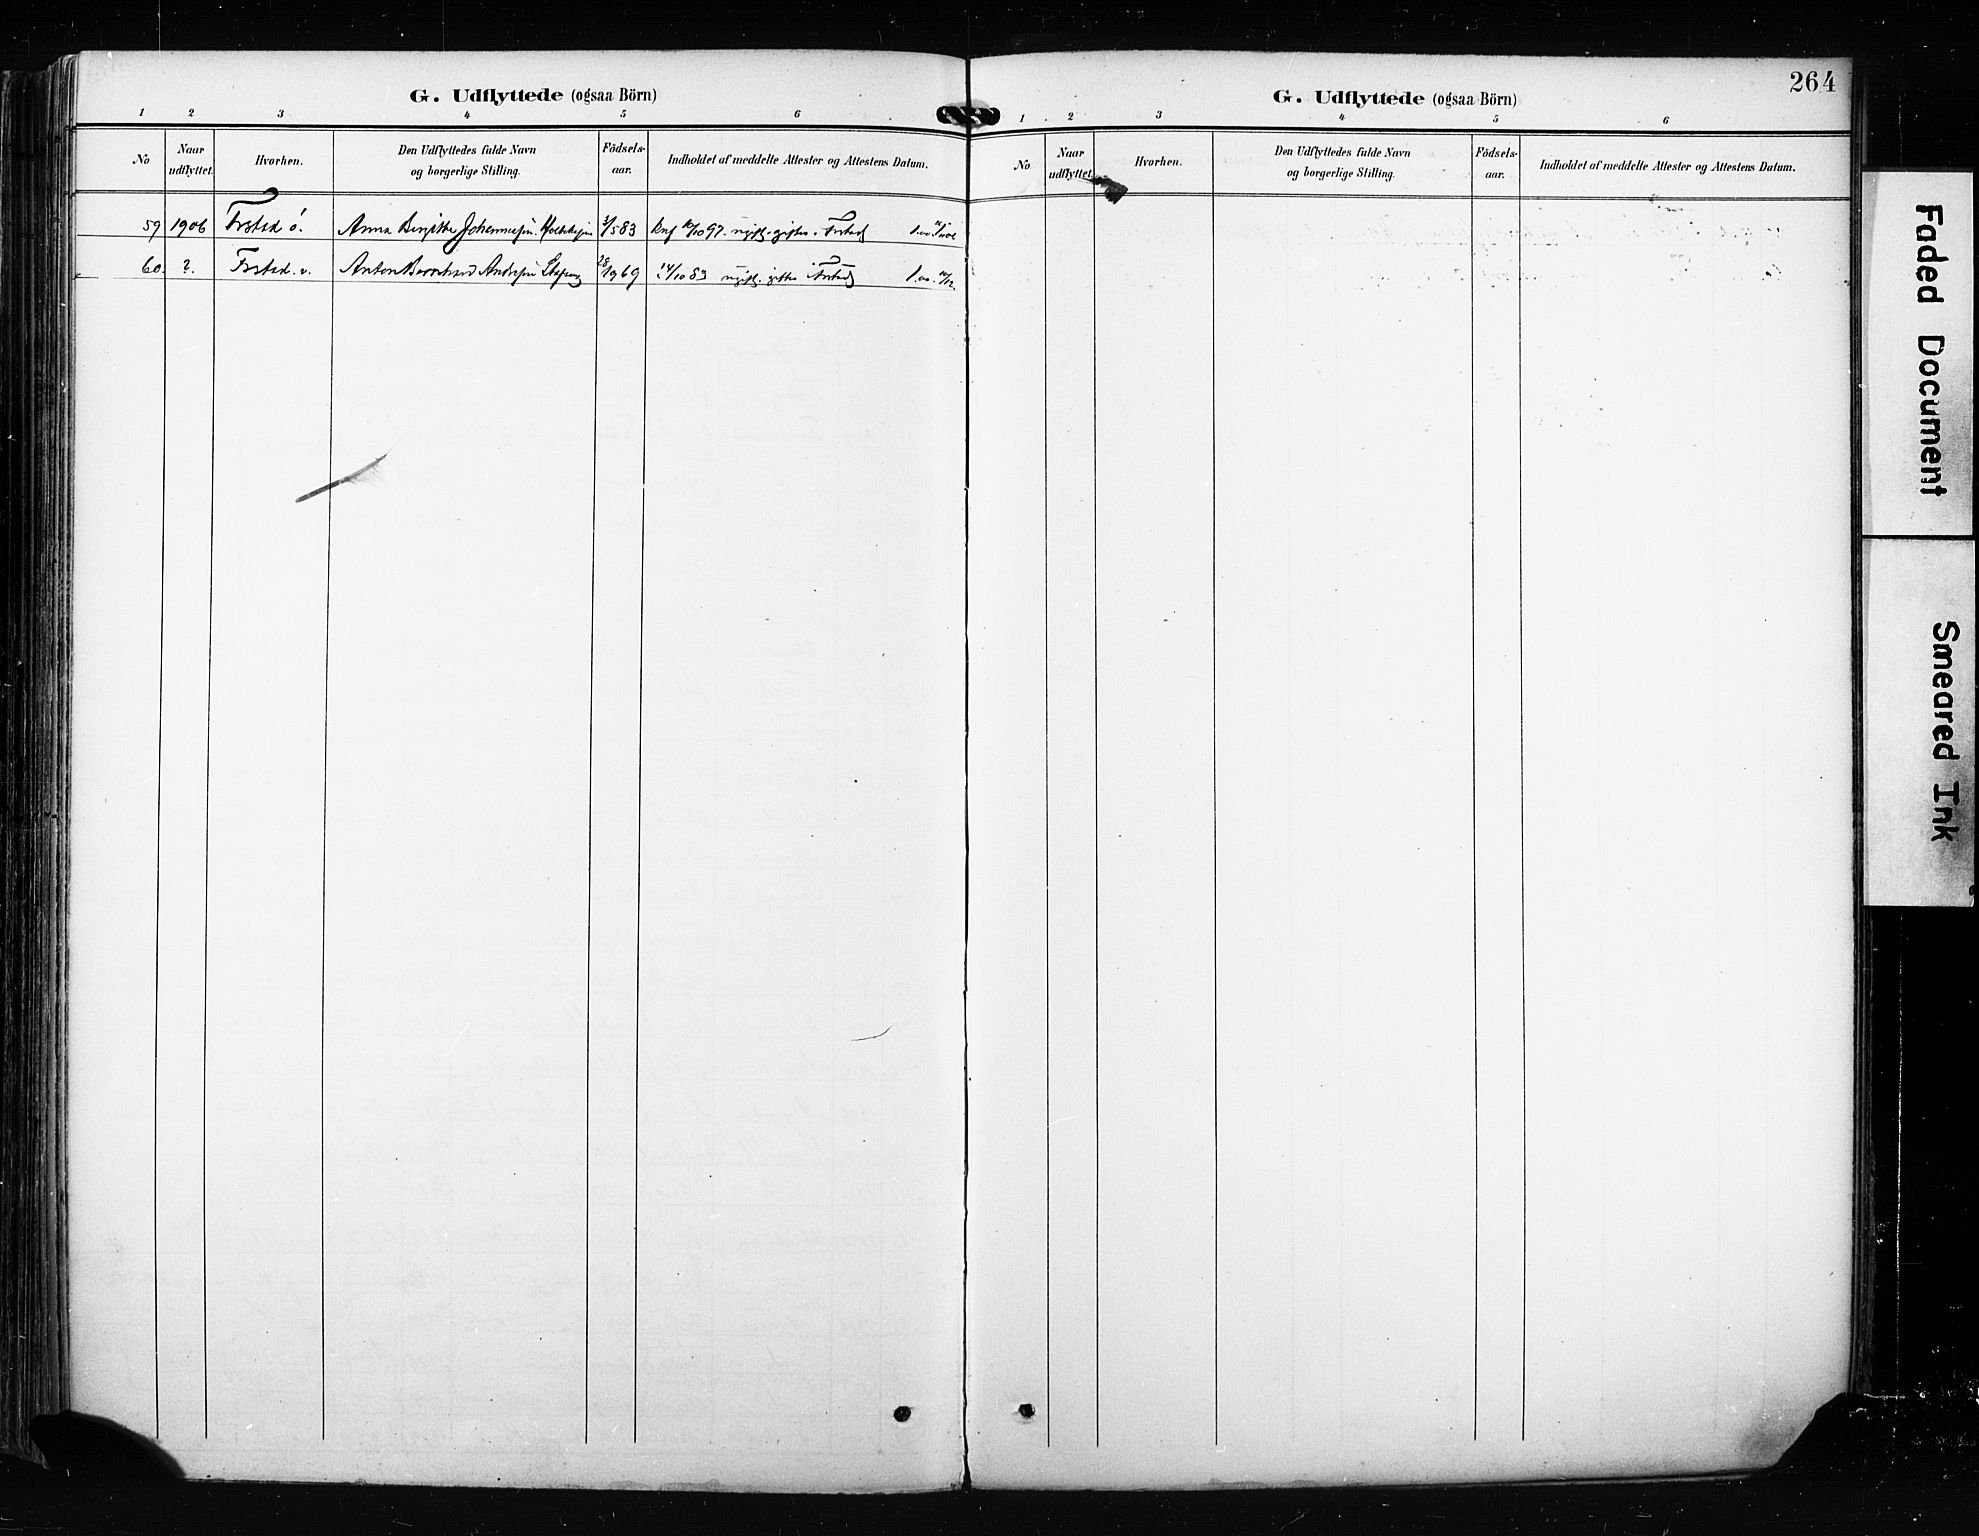 264
G. Udflyttede (ogsaa Börn)
1 2 3 4 5 6
No
Naar udflyttet.
Hvorhen.
Den Udflyttedes fulde Navn og borgerlige Stilling.
Födsels-aar.
Indholdet af meddelte Attester og Attestens Datum.
59 1906 Frstad ö. Anna Birgitte 3/5 83 Knf 97. ugift
60. ?. Frstad. v. Anton Bernhard 28/9 69 14/10 83 ugift
G. Udflyttede (ogsaa Börn)
1 2 3 4 5 6
No
Naar udflyttet.
Hvorhen.
Den Udflyttedes fulde Navn og borgerlige Stilling.
Födsels-aar.
Indholdet af meddelte Attester og Attestens Datum.
Faded Document
Smeared Ink